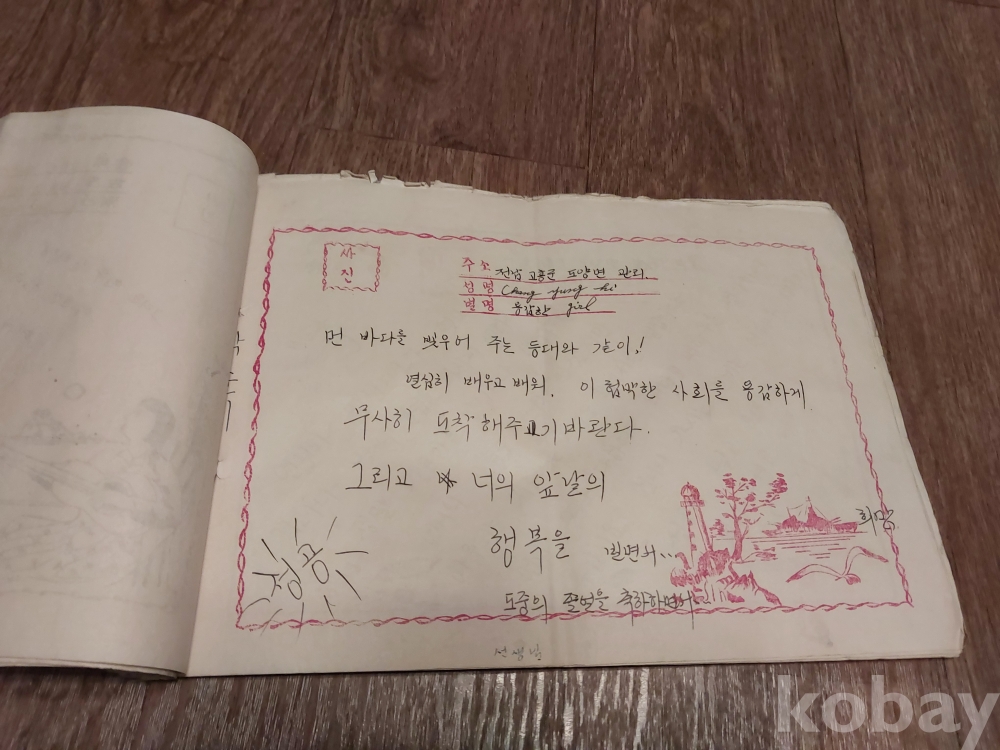 사진
주소 전남 고흥군 도양면 관리.
성명 Chang yung hi
별명 용감한 girl
먼 바다를 빛우어 주는 등대와 같이!
열심히 배우고 배워. 이 험악한 사회를 용감하게
무사히 도착해주기바란다.
그리고 너의 앞날의
행복을 빌면서...
희망
성공
도중의 졸업을 축하하면서
선생님
kobay